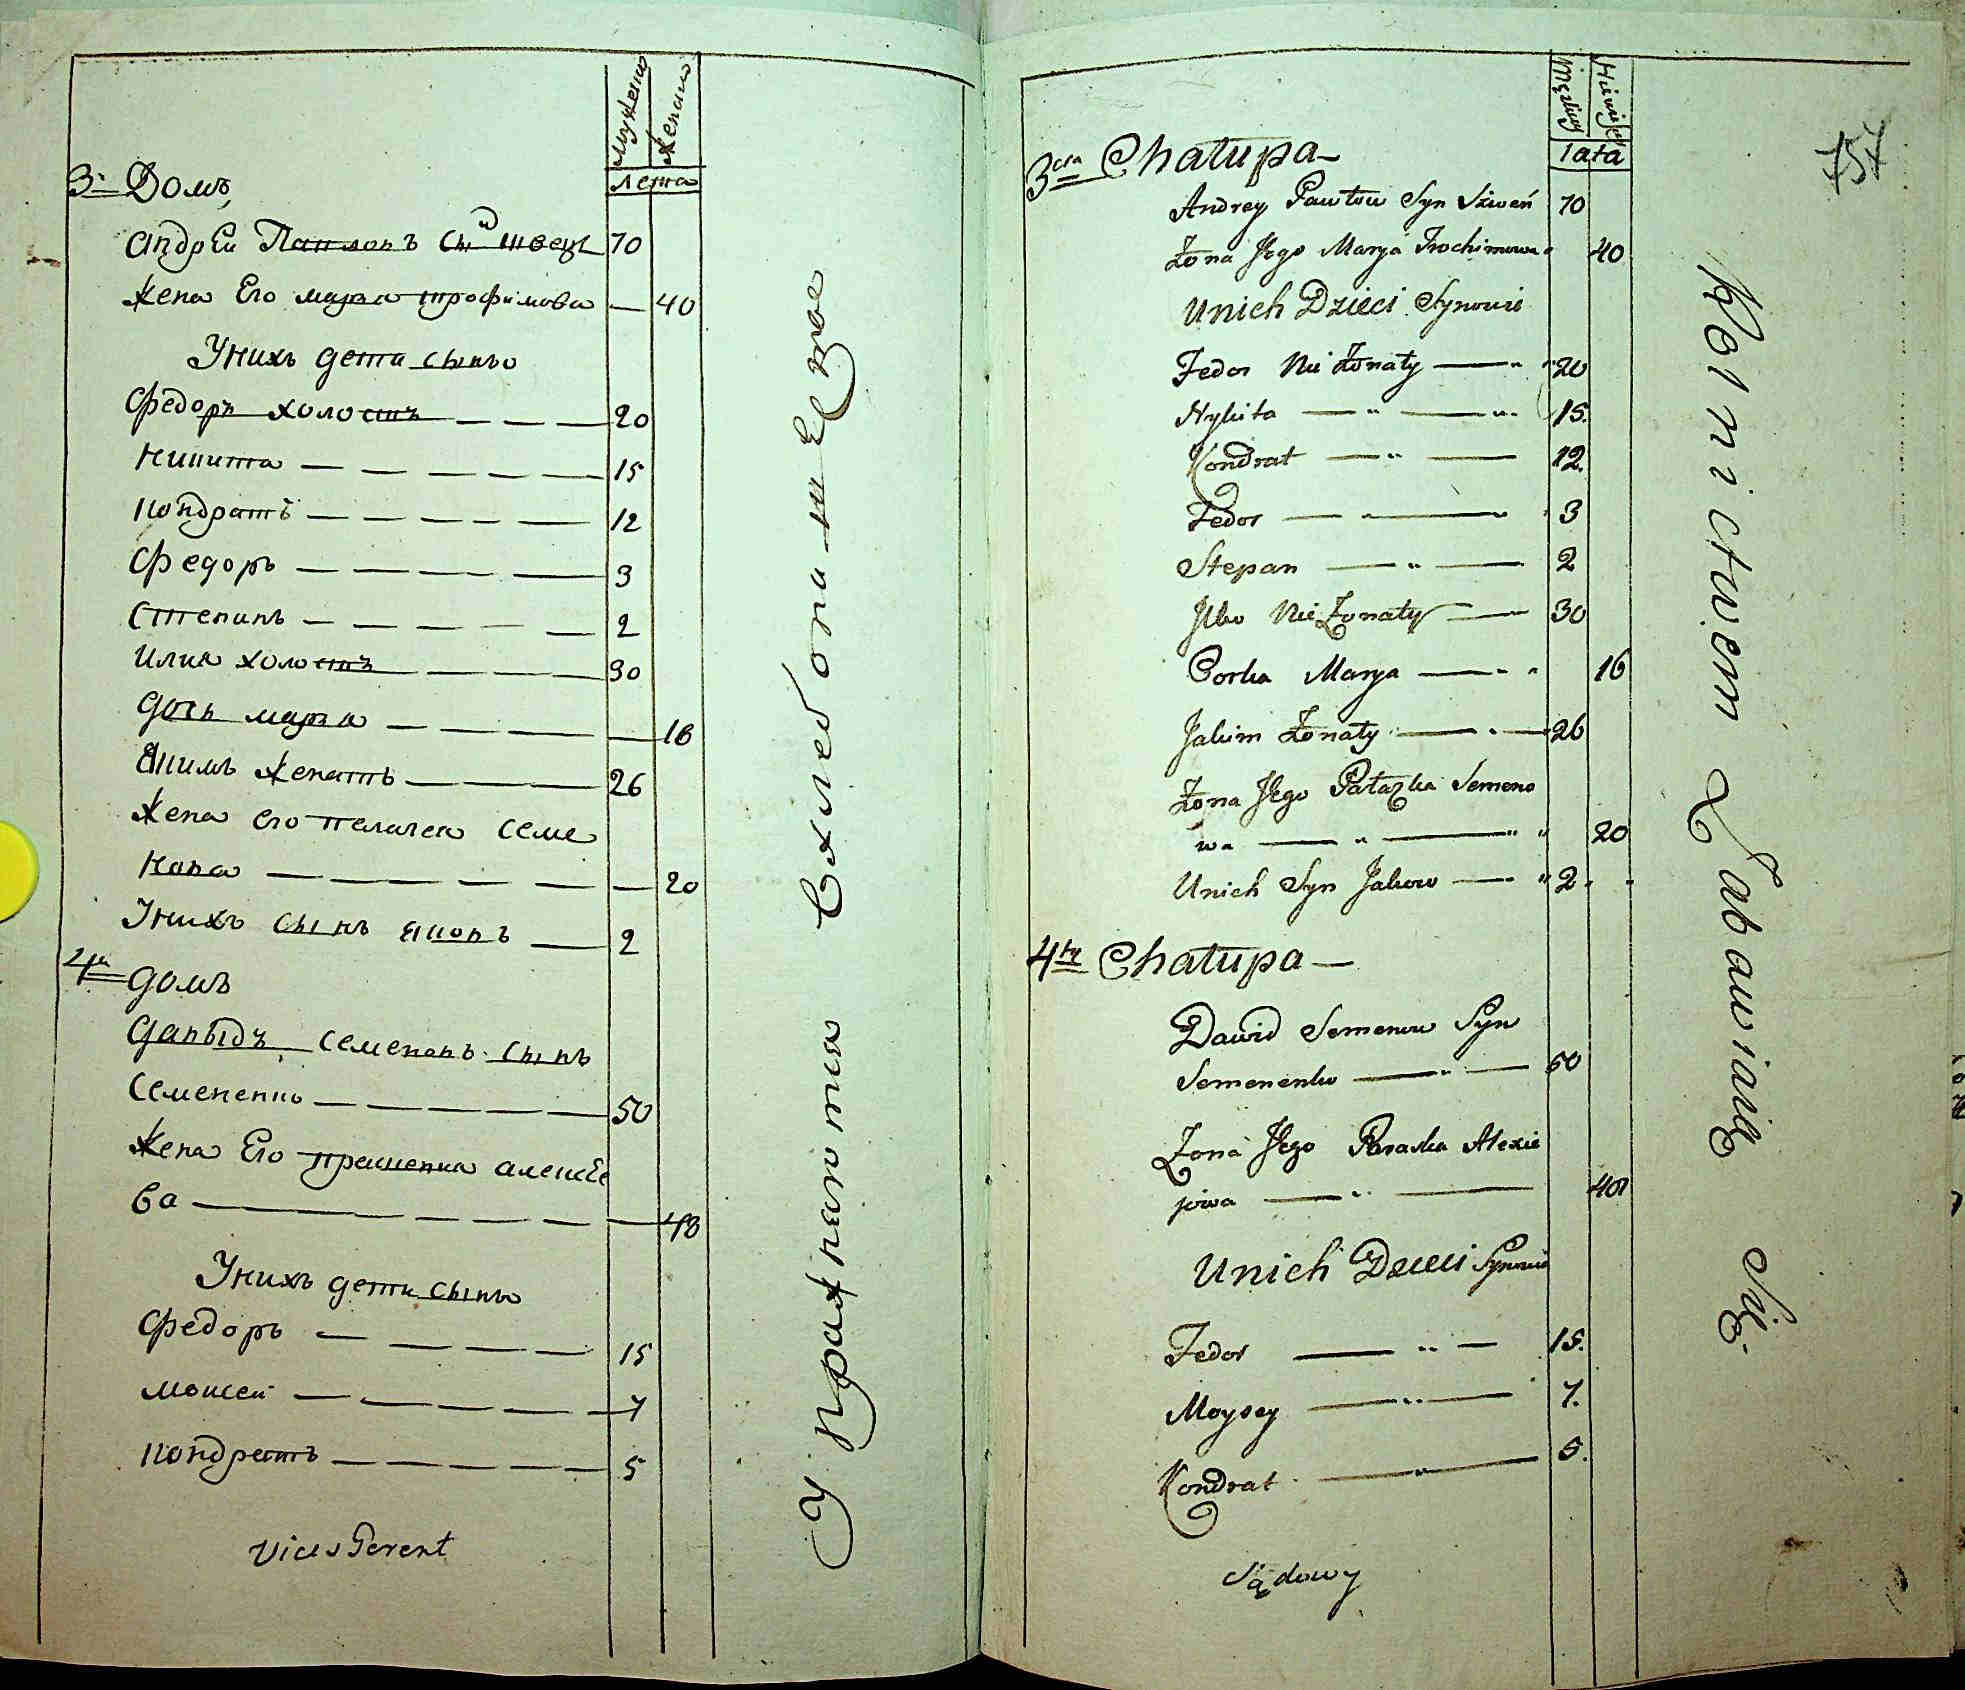 мужеска
женска
лета
3. Домъ,
андрей Павловъ сынъ швецъ 70
жена Его марья трофимова — 40
Унихъ дети сыны
Федоръ холостъ — — — 20
никита — — — — — 15
кондратъ — — — — — 12
Федоръ — — — — — 3
Степанъ — — — — — 2
илия холостъ — — — — 30
дочь марья — — — — — 16
Якимъ женатъ — — — 26
жена его пелагея семе
нова — — — — — — — 20
Унихъ сынъ яковъ — 2
4й домъ
давыдъ семеновъ сынъ
семененко — — — — — 50
жена Его прасценка алексее
ва — — — — — — 48
Унихъ дети сыны
Федоръ — — — — 15
моисей — — — — — 7
кондратъ — — — — — 5
Vices Gerent
Упражняются в хлебопашестве
757
Męzkiey
lata
3cia Chałupa —
Andrey Pawłow Syn Szweń 70
Żona Jego Marya Trochimowa 40
Unich Dzieci Synowie
Fedor Nie Żonaty — 20
Nykita — " — " 15.
Kondrat — " — 12.
Fedor — " — " 3
Stepan — " — 2
Jlko Nie Żonaty — 30
Corka Marya — " " 16
Jakim Żonaty — " — 26
Żona Jego Pałazka Semeno
wa — " — " " 20
Unich Syn Jakow — " 2
4ty Chałupa —
Dawid Semenow Syn
Semenenko — " — 50
Żona Jego Paraska Alexie
jowa — " — 48
Unich Dzieci Synowie
Fedor — " — 15.
Moysey — " — 7.
Kondrat — " — 5.
Sądowy
Rolnictwem Zabawiaią Się.